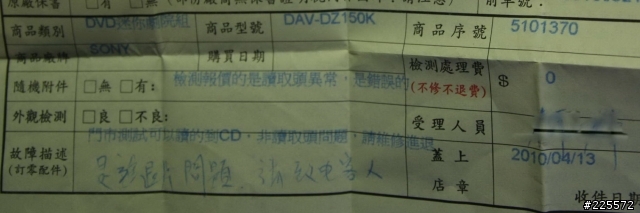 商品類別 DVD迷你劇院組 商品型號 DAV-DZ150K 商品序號 5101370
商品廠牌 SONY 購買日期
隨機附件 □無 □有: 檢測報價的是讀取頭異常，是錯誤的 檢測處理費 $ 0
(不修不退費)
外觀檢測 □良 □不良: 受理人員
門市測試可以讀的到CD，非讀取頭問題，請維修進退
故障描述 蓋上 2010/04/13
(訂零配件) 問題 請致電客人 店章
收件日期
#225572